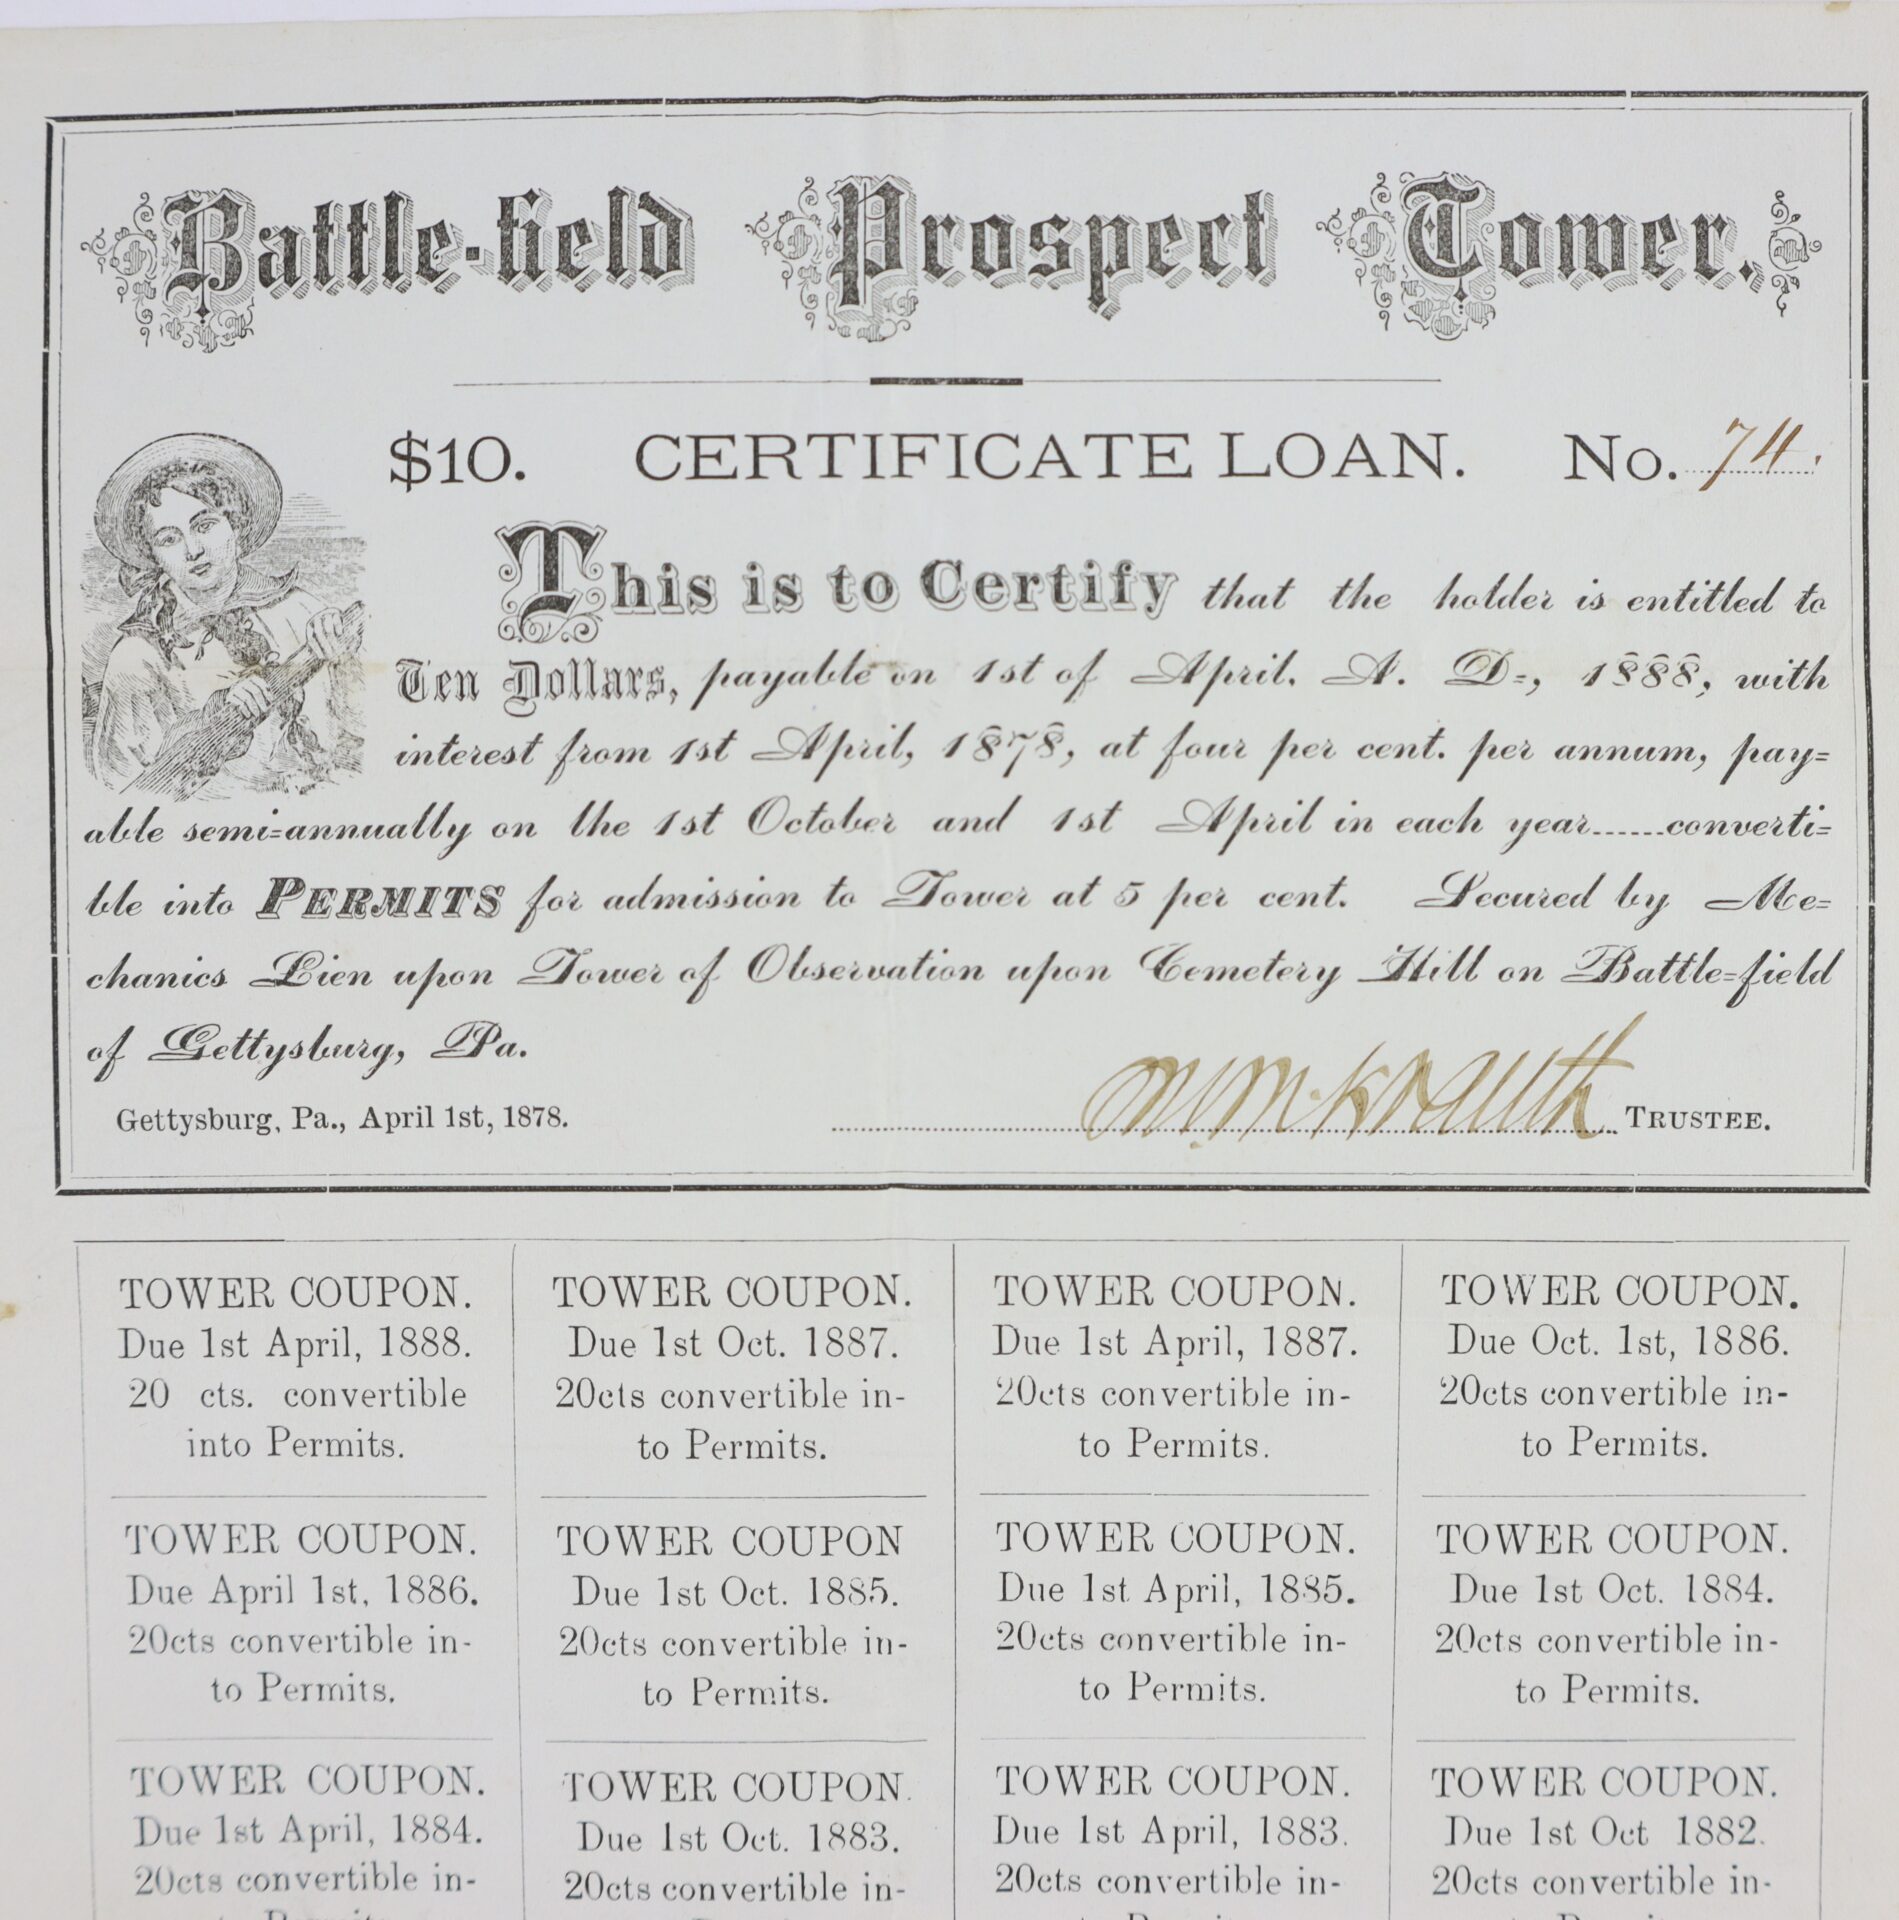 Battle-field Prospect Tower.
$10. CERTIFICATE LOAN. No. 74.
This is to Certify that the holder is entitled to
Ten Dollars, payable on 1st of April. A. D=, 1888, with
interest from 1st April, 1878, at four per cent. per annum, pay=
able semi=annually on the 1st October and 1st April in each year......converti=
ble into PERMITS for admission to Tower at 5 per cent. Secured by Me=
chanics Lien upon Tower of Observation upon Cemetery Hill on Battle=field
of Gettysburg, Pa.
Gettysburg, Pa., April 1st, 1878. Wm. Krauth TRUSTEE.
TOWER COUPON.
Due 1st April, 1888.
20 cts. convertible
into Permits.
TOWER COUPON.
Due 1st Oct. 1887.
20cts convertible in-
to Permits.
TOWER COUPON.
Due 1st April, 1887.
20cts convertible in-
to Permits.
TOWER COUPON.
Due Oct. 1st, 1886.
20cts convertible in-
to Permits.
TOWER COUPON.
Due April 1st, 1886.
20cts convertible in-
to Permits.
TOWER COUPON
Due 1st Oct. 1885.
20cts convertible in-
to Permits.
TOWER COUPON.
Due 1st April, 1885.
20cts convertible in-
to Permits.
TOWER COUPON.
Due 1st Oct. 1884.
20cts convertible in-
to Permits.
TOWER COUPON.
Due 1st April, 1884.
20cts convertible in-
TOWER COUPON.
Due 1st Oct. 1883.
20cts convertible in-
TOWER COUPON.
Due 1st April, 1883.
20cts convertible in-
TOWER COUPON.
Due 1st Oct 1882.
20cts convertible in-